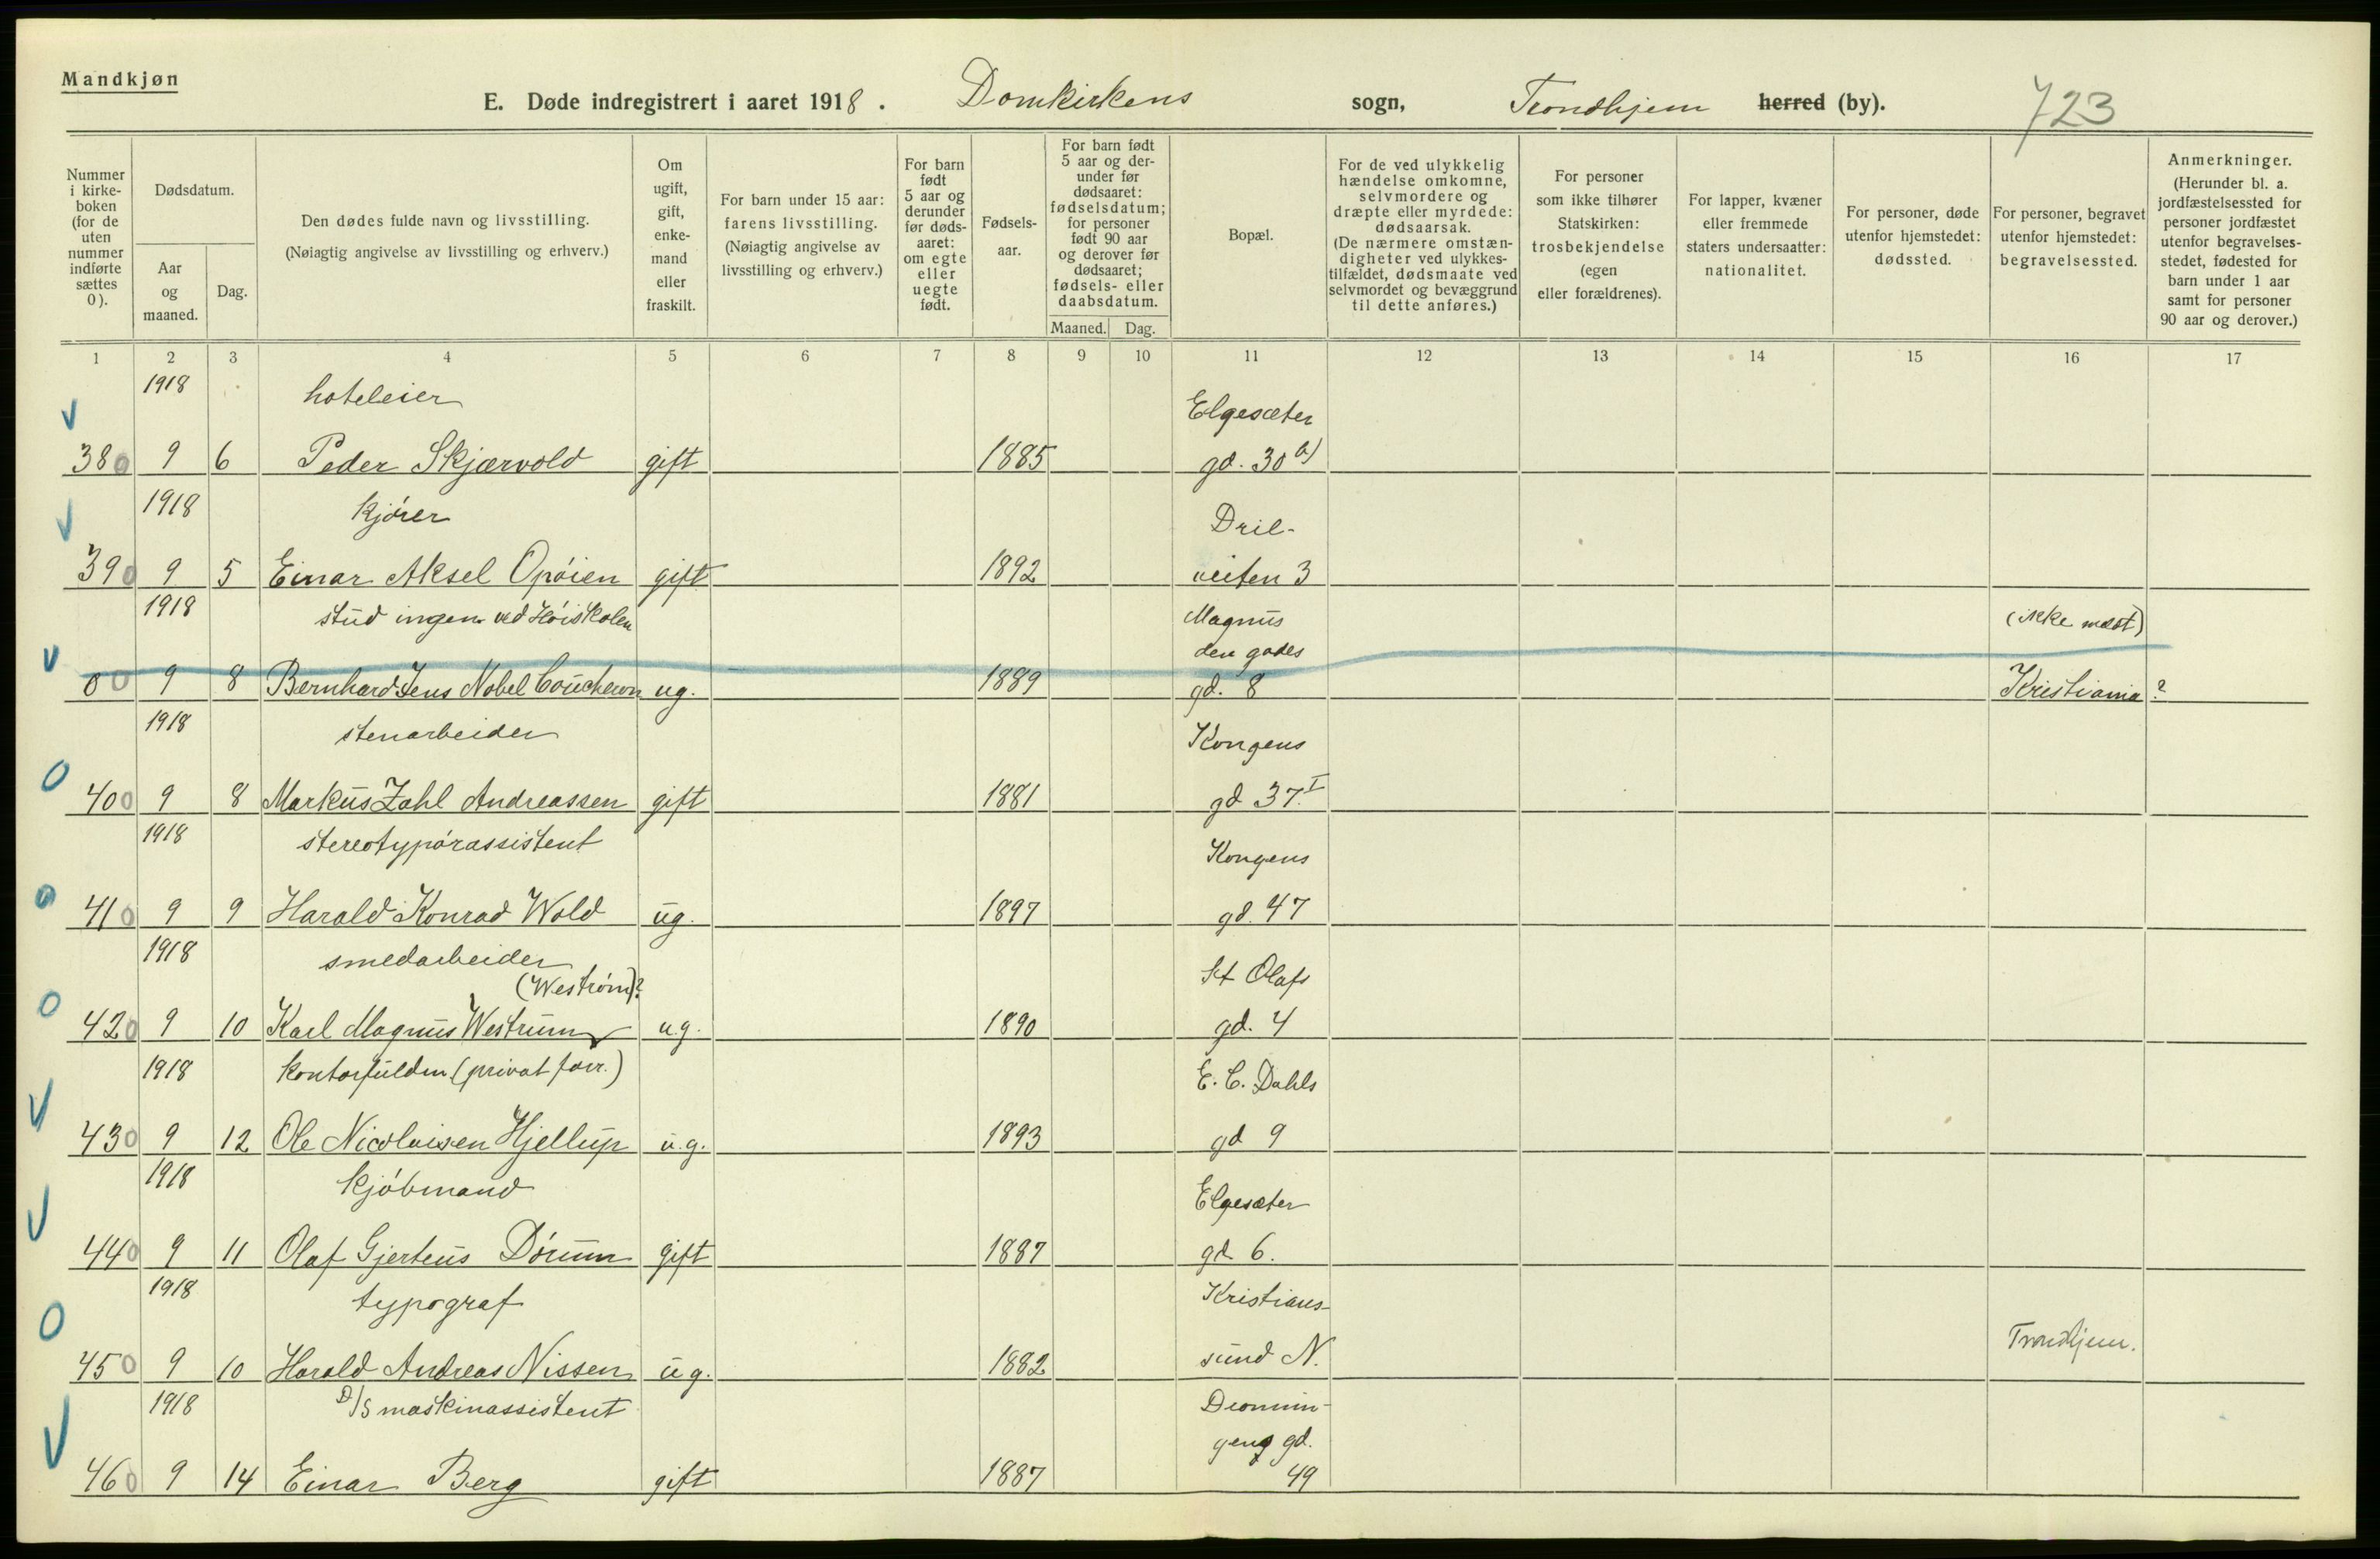 Mandkjøn
E. Døde indregistrert i aaret 1918. Domkirkens sogn, Trondhjem herred (by). 723
Nummer i kirke-boken (for de uten nummer indførte sættes 0).
Dødsdatum.
Aar og maaned.
Dag.
Den dødes fulde navn og livsstilling.
(Nøiagtig angivelse av livsstilling og erhverv.)
Om ugift, gift, enke-mand eller fraskilt.
For barn under 15 aar: farens livsstilling.
(Nøiagtig angivelse av livsstilling og erhverv.)
For barn født 5 aar og derunder før døds-aaret: om egte eller uegte født.
Fødsels-aar.
For barn født 5 aar og der-under før dødsaaret: fødselsdatum; for personer født 90 aar og derover før dødsaaret; fødsels- eller daabsdatum.
Maaned. Dag.
Bopæl.
For de ved ulykkelig hændelse omkomne, selvmordere og dræpte eller myrdede: dødsaarsak.
(De nærmere omstæn-digheter ved ulykkes-tilfældet, dødsmaate ved selvmordet og bevæggrund til dette anføres.)
For personer som ikke tilhører Statskirken: trosbekjendelse (egen eller forældrenes).
For lapper, kvæner eller fremmede staters undersaatter: nationalitet.
For personer, døde utenfor hjemstedet: dødssted.
For personer, begravet utenfor hjemstedet: begravelsessted.
Anmerkninger.
(Herunder bl. a. jordfæstelsessted for personer jordfæstet utenfor begravelses-stedet, fødested for barn under 1 aar samt for personer 90 aar og derover.)
1 2 3 4 5 6 7 8 9 10 11 12 13 14 15 16 17
1918 hoteleier Elgesæter
380 9 6 Peder Skjærvold gift 1885 gd. 30 a)
1918 kjører Dril-
390 9 5 Einar Aksel Opøien gift 1892 veiten 3
1918 stud ingen. ved Høiskolen Magnus (ikke medt)
den godes
00 9 8 Bernhard Jens Nobel ug. 1889 gd. 8 Kristiania ?
1918 stenarbeider Kongens
400 9 8 Markus Zahl Andreassen gift 1881 gd 37.I
1918 stereotypørassistent Kongens
410 9 9 Harald Konrad Wold ug. 1897 gd. 47
1918 smedarbeider St Olafs
(Westrøm)?
420 9 10 Karl Magnus Westrum u.g. 1890 gd. 4
1918 kontorfuldm. (privat forr.) E. C. Dahls
430 9 12 Ole Nicolaisen Hjellup u.g. 1893 gd 9
1918 kjøbmand Elgesæter
440 9 11 Olaf Gjerteus Dørum gift 1887 gd 6.
1918 typograf Kristians-
450 9 10 Harald Andreas Nissen ug. 1882 sund N. Trondhjem.
1918 D/S maskinassistent Dronnin-
gens gd.
460 9 14 Einar Berg gift 1887 49